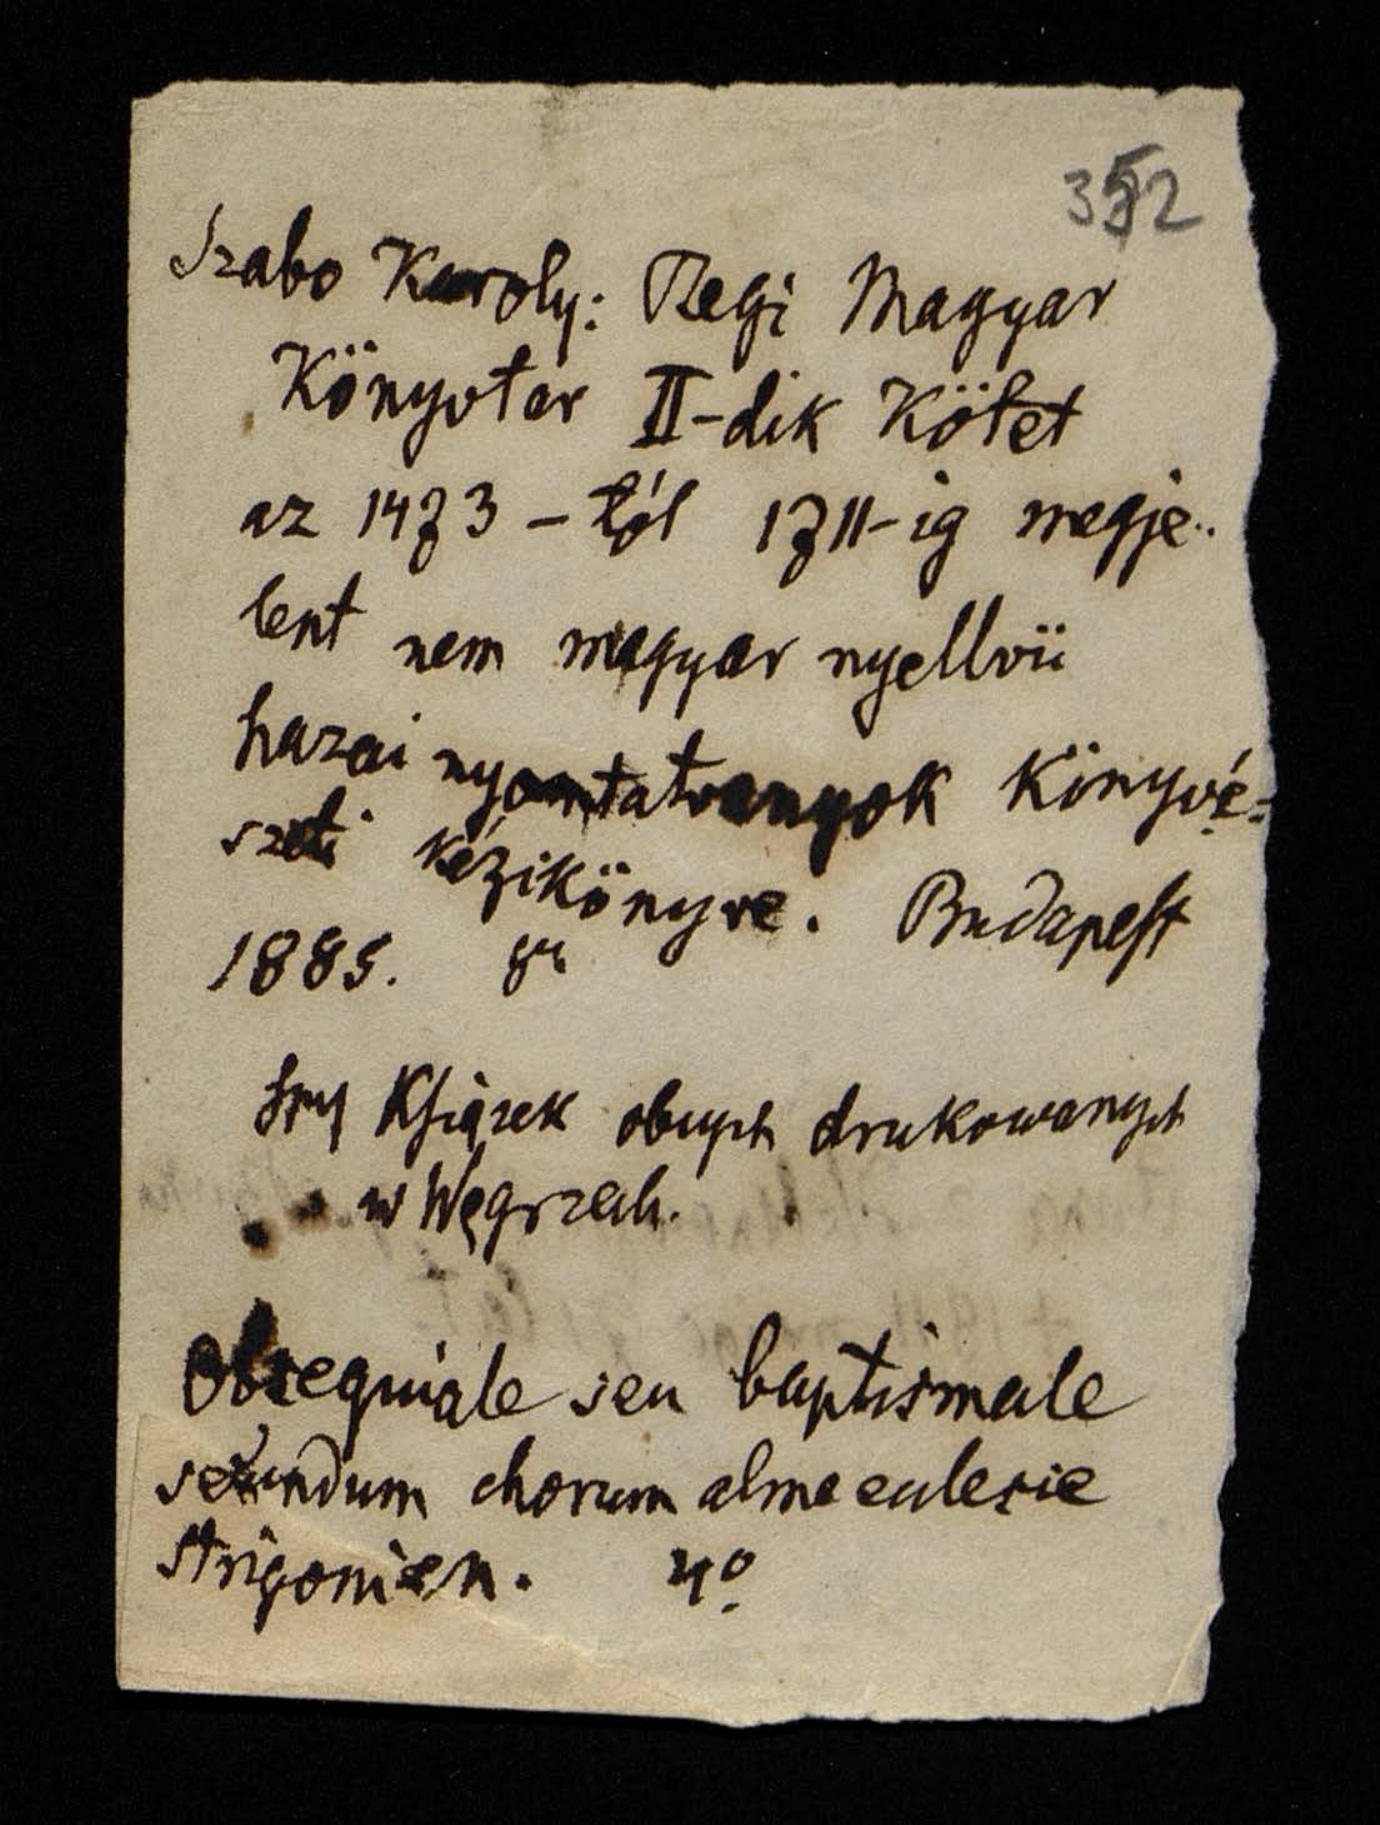 352
Szabo Karoly: Regi Magyar
Könyvtar II-dik Kötet
az 1473 - tól 1711-ig megje..
lent nem magyar nyellvü
hazai nyomtatvanyok Könyvé-
szeti kézikönyve. Budapest
1885. 8vo
Spis Książek obcych drukowanych
w Węgrzech.
Obsequiale seu baptismale
secundum chorum alme eclesie
strigonien. 4o